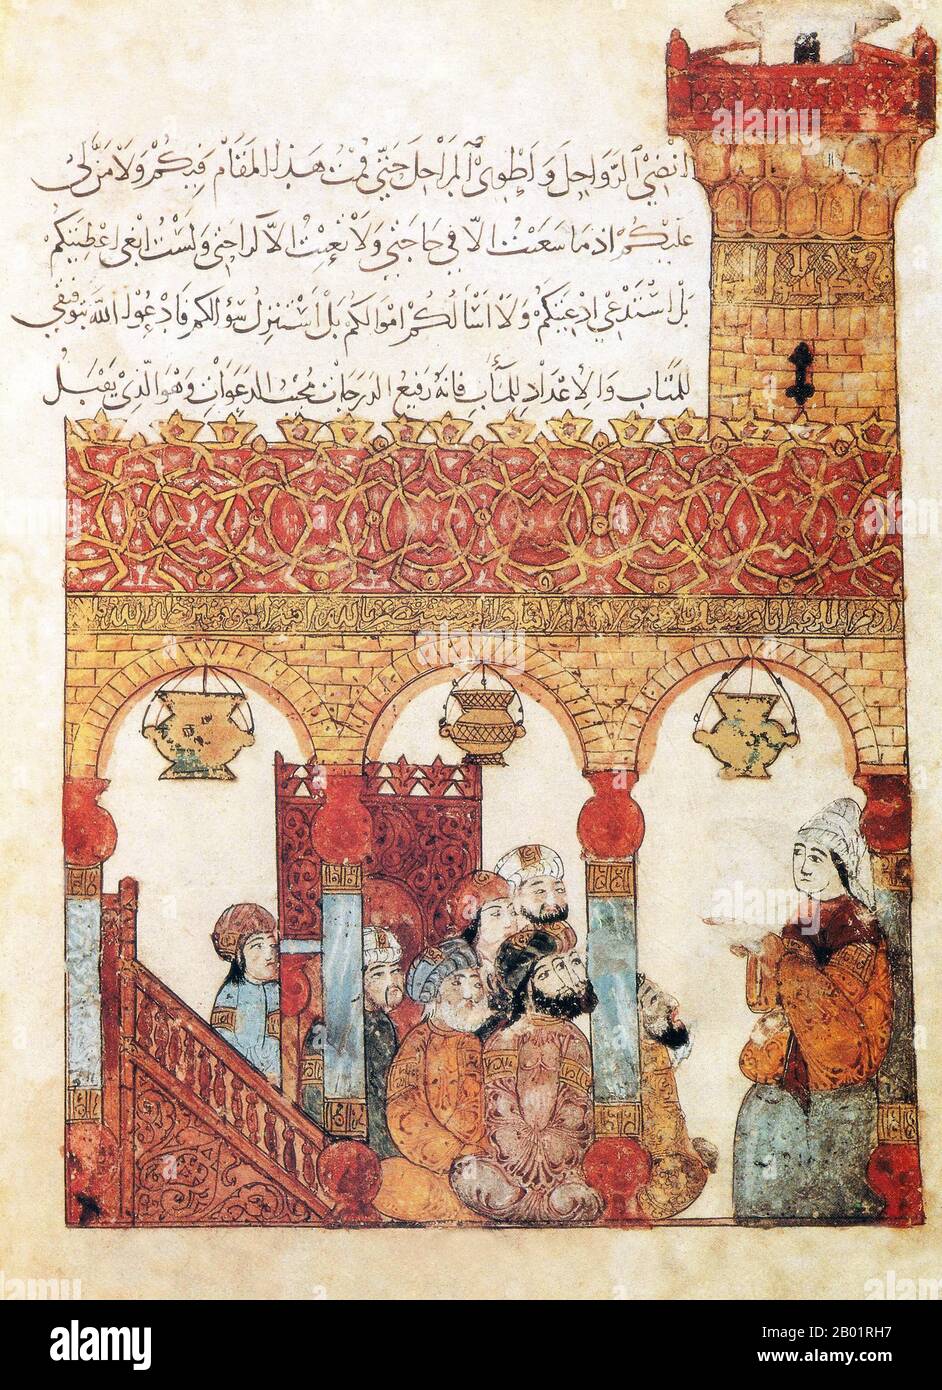 انضي الرواحل واطوي المراحل حتي قمت هذا المقام فيكم ولا من لي
عليكم اذ ما سعيت الا في حاجتي ولا تعبت الا لراحتي ولست ابغي اعطيتكم
بل استدعي ادعيتكم ولا اسألكم اموالكم بل استنزل سؤالكم فادعوا الله بتوفيقي
للمتاب والاعداد للمآب فانه رفيع الدرجات مجيب الدعوات وهو الذي يقبل
alamy
Image ID: 2B01RH7
www.alamy.com